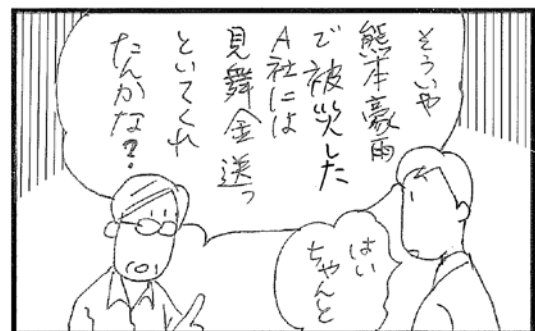 そういや
熊本豪雨
で被災した
A社には
見舞金送っ
といてくれ
たんかな?
はい
ちゃんと